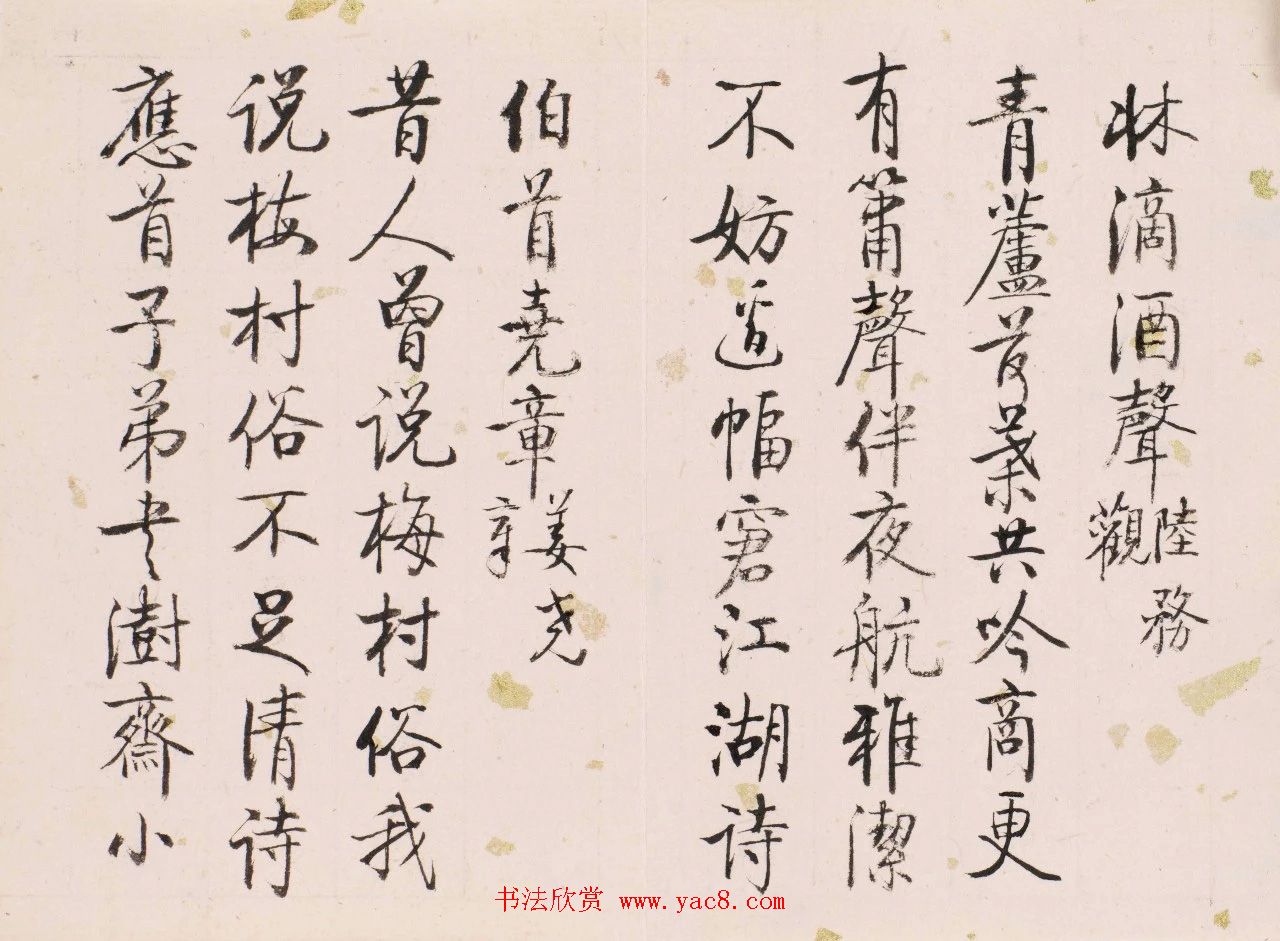 牀滴酒聲 陸務觀
青蘆苦葉共吟商更
有簫聲伴夜航雅潔
不妨邊幅窘江湖詩
伯首堯章 姜尧章
昔人曾说梅村俗我
说梅村俗不足清诗
應首子弟
澍齋小
书法欣赏 www.yac8.com